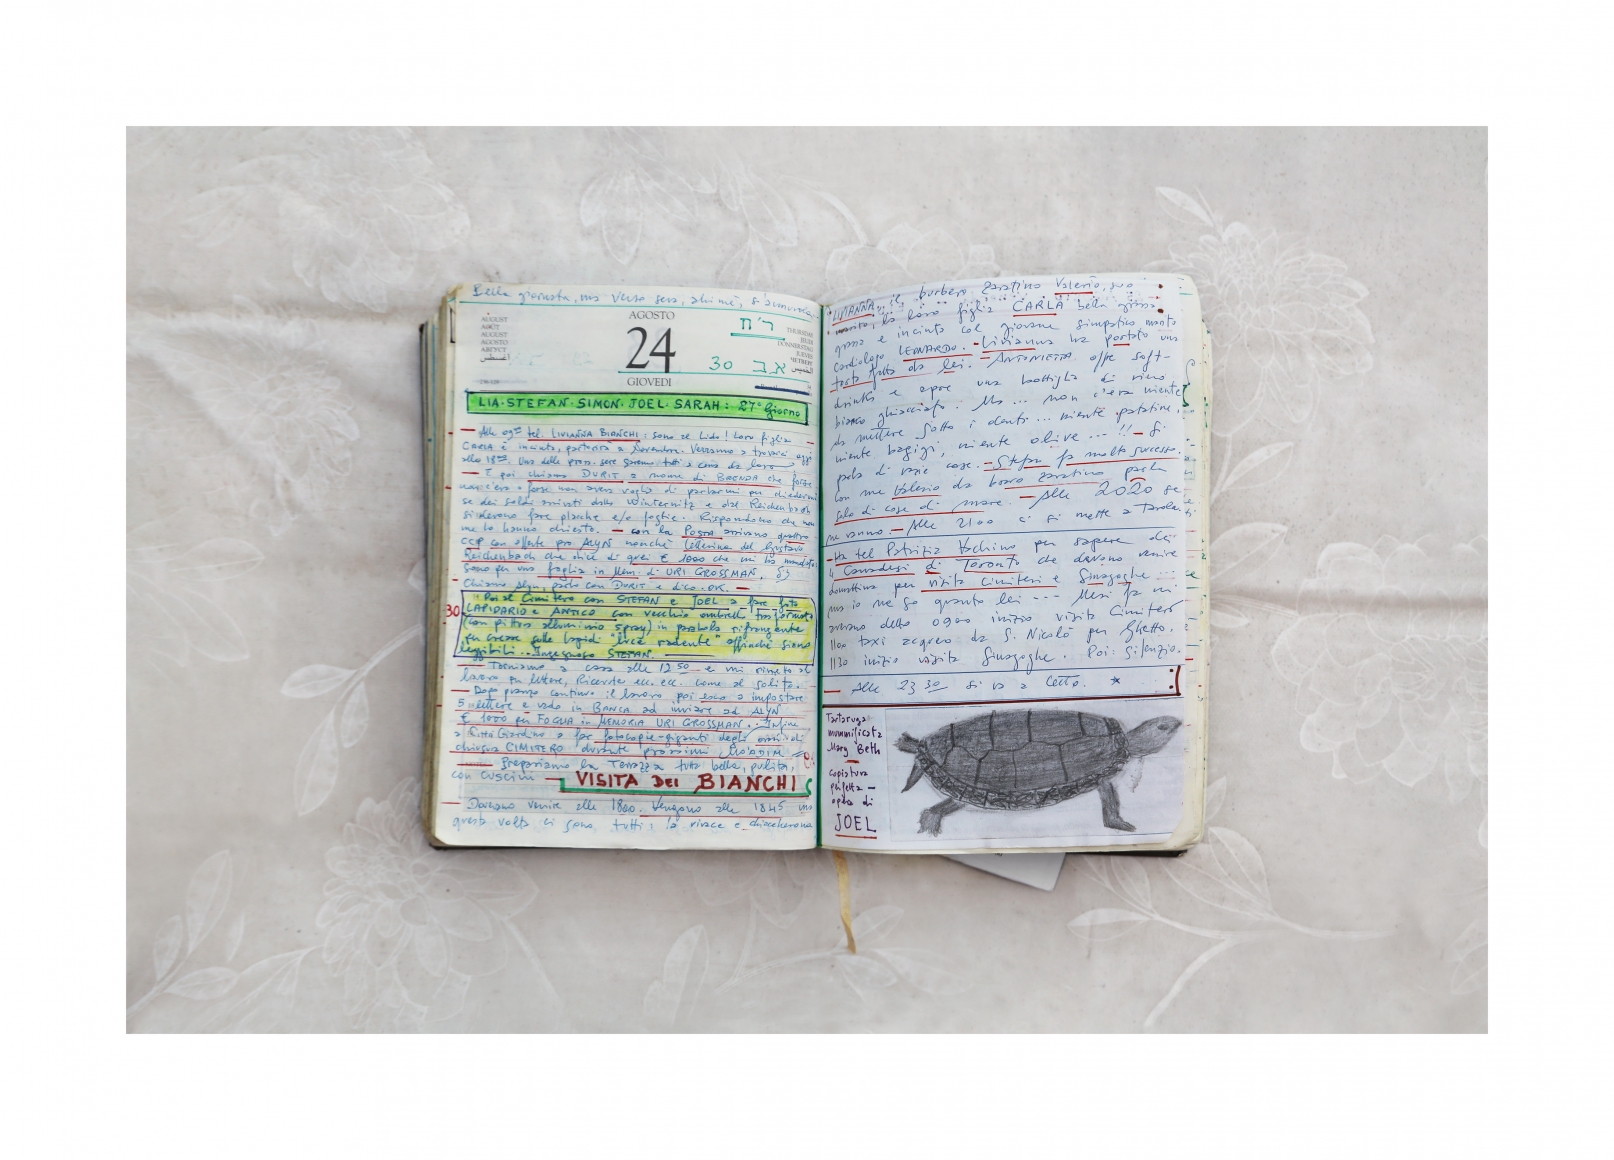 Bella giornata, ma verso sera, ahimè, s'annuvola
AUGUST
AOÛT
AUGUST
AGOSTO
АВГУСТ
أغسطس
AGOSTO
24
GIOVEDI
ר"ח
30 אב
THURSDAY
JEUDI
DONNERSTAG
JUEVES
ЧЕТВЕРГ
الخميس
LIA · STEFAN · SIMON · JOEL · SARAH : 27° Giorno
Alle tel. LIVIANNA BIANCHI : sono al Lido ! Loro figlia
CARLA è incinta, partorirà a Novembre. Verranno a trovarci oggi
alle 18. Una delle pross. sere saremo tutti a cena da loro
E poi chiama DURIT a nome di BRENDA che forse
non c'era o forse non aveva voglia di parlarmi per chiedermi
se dei soldi arrivati dalla Winternitz e dal Reichenbach
si devono fare placche e/o foglie. Rispondono che non
me lo hanno chiesto. — Con la POSTA arrivano quattro
CCP con offerte pro ALYN nonchè letterina del Gustavo
Reichenbach che dice di quei £ 1000 che mi ha mandato
sono per una foglia in Mem. di URI GROSSMAN.
Chiamo Alyn parlo con DURIT e dico ok. —
30
Poi al Cimitero con STEFAN e JOEL a fare foto
LAPIDARIO e ANTICO con vecchio ombrello trasformato
(con pittura alluminio spray) in parabola rifrangente
per creare sulle lapidi "luce radente" affinchè siano
leggibili... Ingegnoso STEFAN.
Torniamo a casa alle 12 50 e mi rimetto al
lavoro per lettere, Ricevute ecc. ecc. come al solito.
Dopo pranzo continuo il lavoro poi esco a impostare
5 lettere e vado in BANCA ad inviare ad ALYN
£ 1000 per FOGLIA in MEMORIA URI GROSSMAN. Infine
a Città Giardino a far fotocopie giganti degli orari di
chiusura CIMITERO durante prossimi Mo'adim
Prepariamo la Terrazza tutta bella, pulita,
con cuscini — VISITA DEI BIANCHI
Dovevano venire alle 1800. Vengono alle 1845 ma
questa volta ci sono tutti : la vivace e chiacchierona
LIVIANNA, il burbero Valerio, suo
marito, la loro figlia CARLA bella grossa
grossa e incinta col giovane simpatico marito
cardiologo LEONARDO. - Livianna ha portato una
torta fatta da lei. ANTONIETTA offre soft-
drinks e apre una bottiglia di vino
bianco ghiacciato. Ma ... non c'era niente
da mettere sotto i denti ... niente patatine,
niente bagigi, niente olive ... !! - Si
parla di varie cose. - Stefan fa molto successo.
Con me Valerio da bravo parla
solo di cose di mare. - Alle 2020 se
ne vanno. - Alle 2100 ci si mette a Tavola.
tel Patrizia per sapere dei
4 Canadesi di Toronto che devono venire
domattina per visita Cimiteri e Sinagoghe ...
ma io ne so quanto lei ...
0900 inizio visita Cimitero
1100 taxi acqueo da S. Nicolò per Ghetto.
1130 inizio visita Sinagoghe. Poi: silenzio.
— Alle 23 30 si va a letto. *
Tartaruga
mummificata
Mary Beth
copiatura
perfetta —
opera di
JOEL